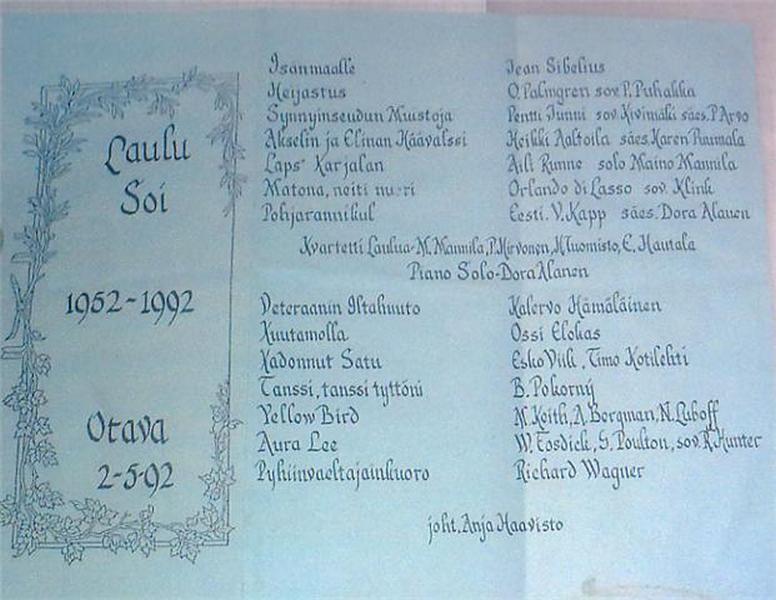 Laulu
Soi
1952-1992
Otava
2-5-92
Isänmaalle Jean Sibelius
Heijastus O. Palmgren sov. P. Puhakka
Synnyinseudun Muistoja Pentti Junni sov. Kivimäki säes. P Arvo
Akselin ja Elinan Häävalssi Heikki Aaltoila säes. Karen Puumala
Laps' Karjalan Aili Runne solo Maino Mannila
Matona, neiti nuori Orlando di Lasso sov. Klink
Pohjarannikul Eesti. V. Kapp säes. Dora Alanen
Kvartetti Laulua-M. Mannila, P. Hirvonen, H Tuomisto, E. Hautala
Piano Solo-Dora Alanen
Veteraanin Iltahuuto Kalervo Hämäläinen
Kuutamolla Ossi Elokas
Kadonnut Satu Esko Viik, Timo Kotilehti
Tanssi, tanssi tyttöni B. Pokorný
Yellow Bird M. Keith, A. Bergman, N. Luboff
Aura Lee W. Fosdick, G. Poulton, sov. R. Hunter
Pyhiinvaeltajainkuoro Richard Wagner
joht. Anja Haavisto